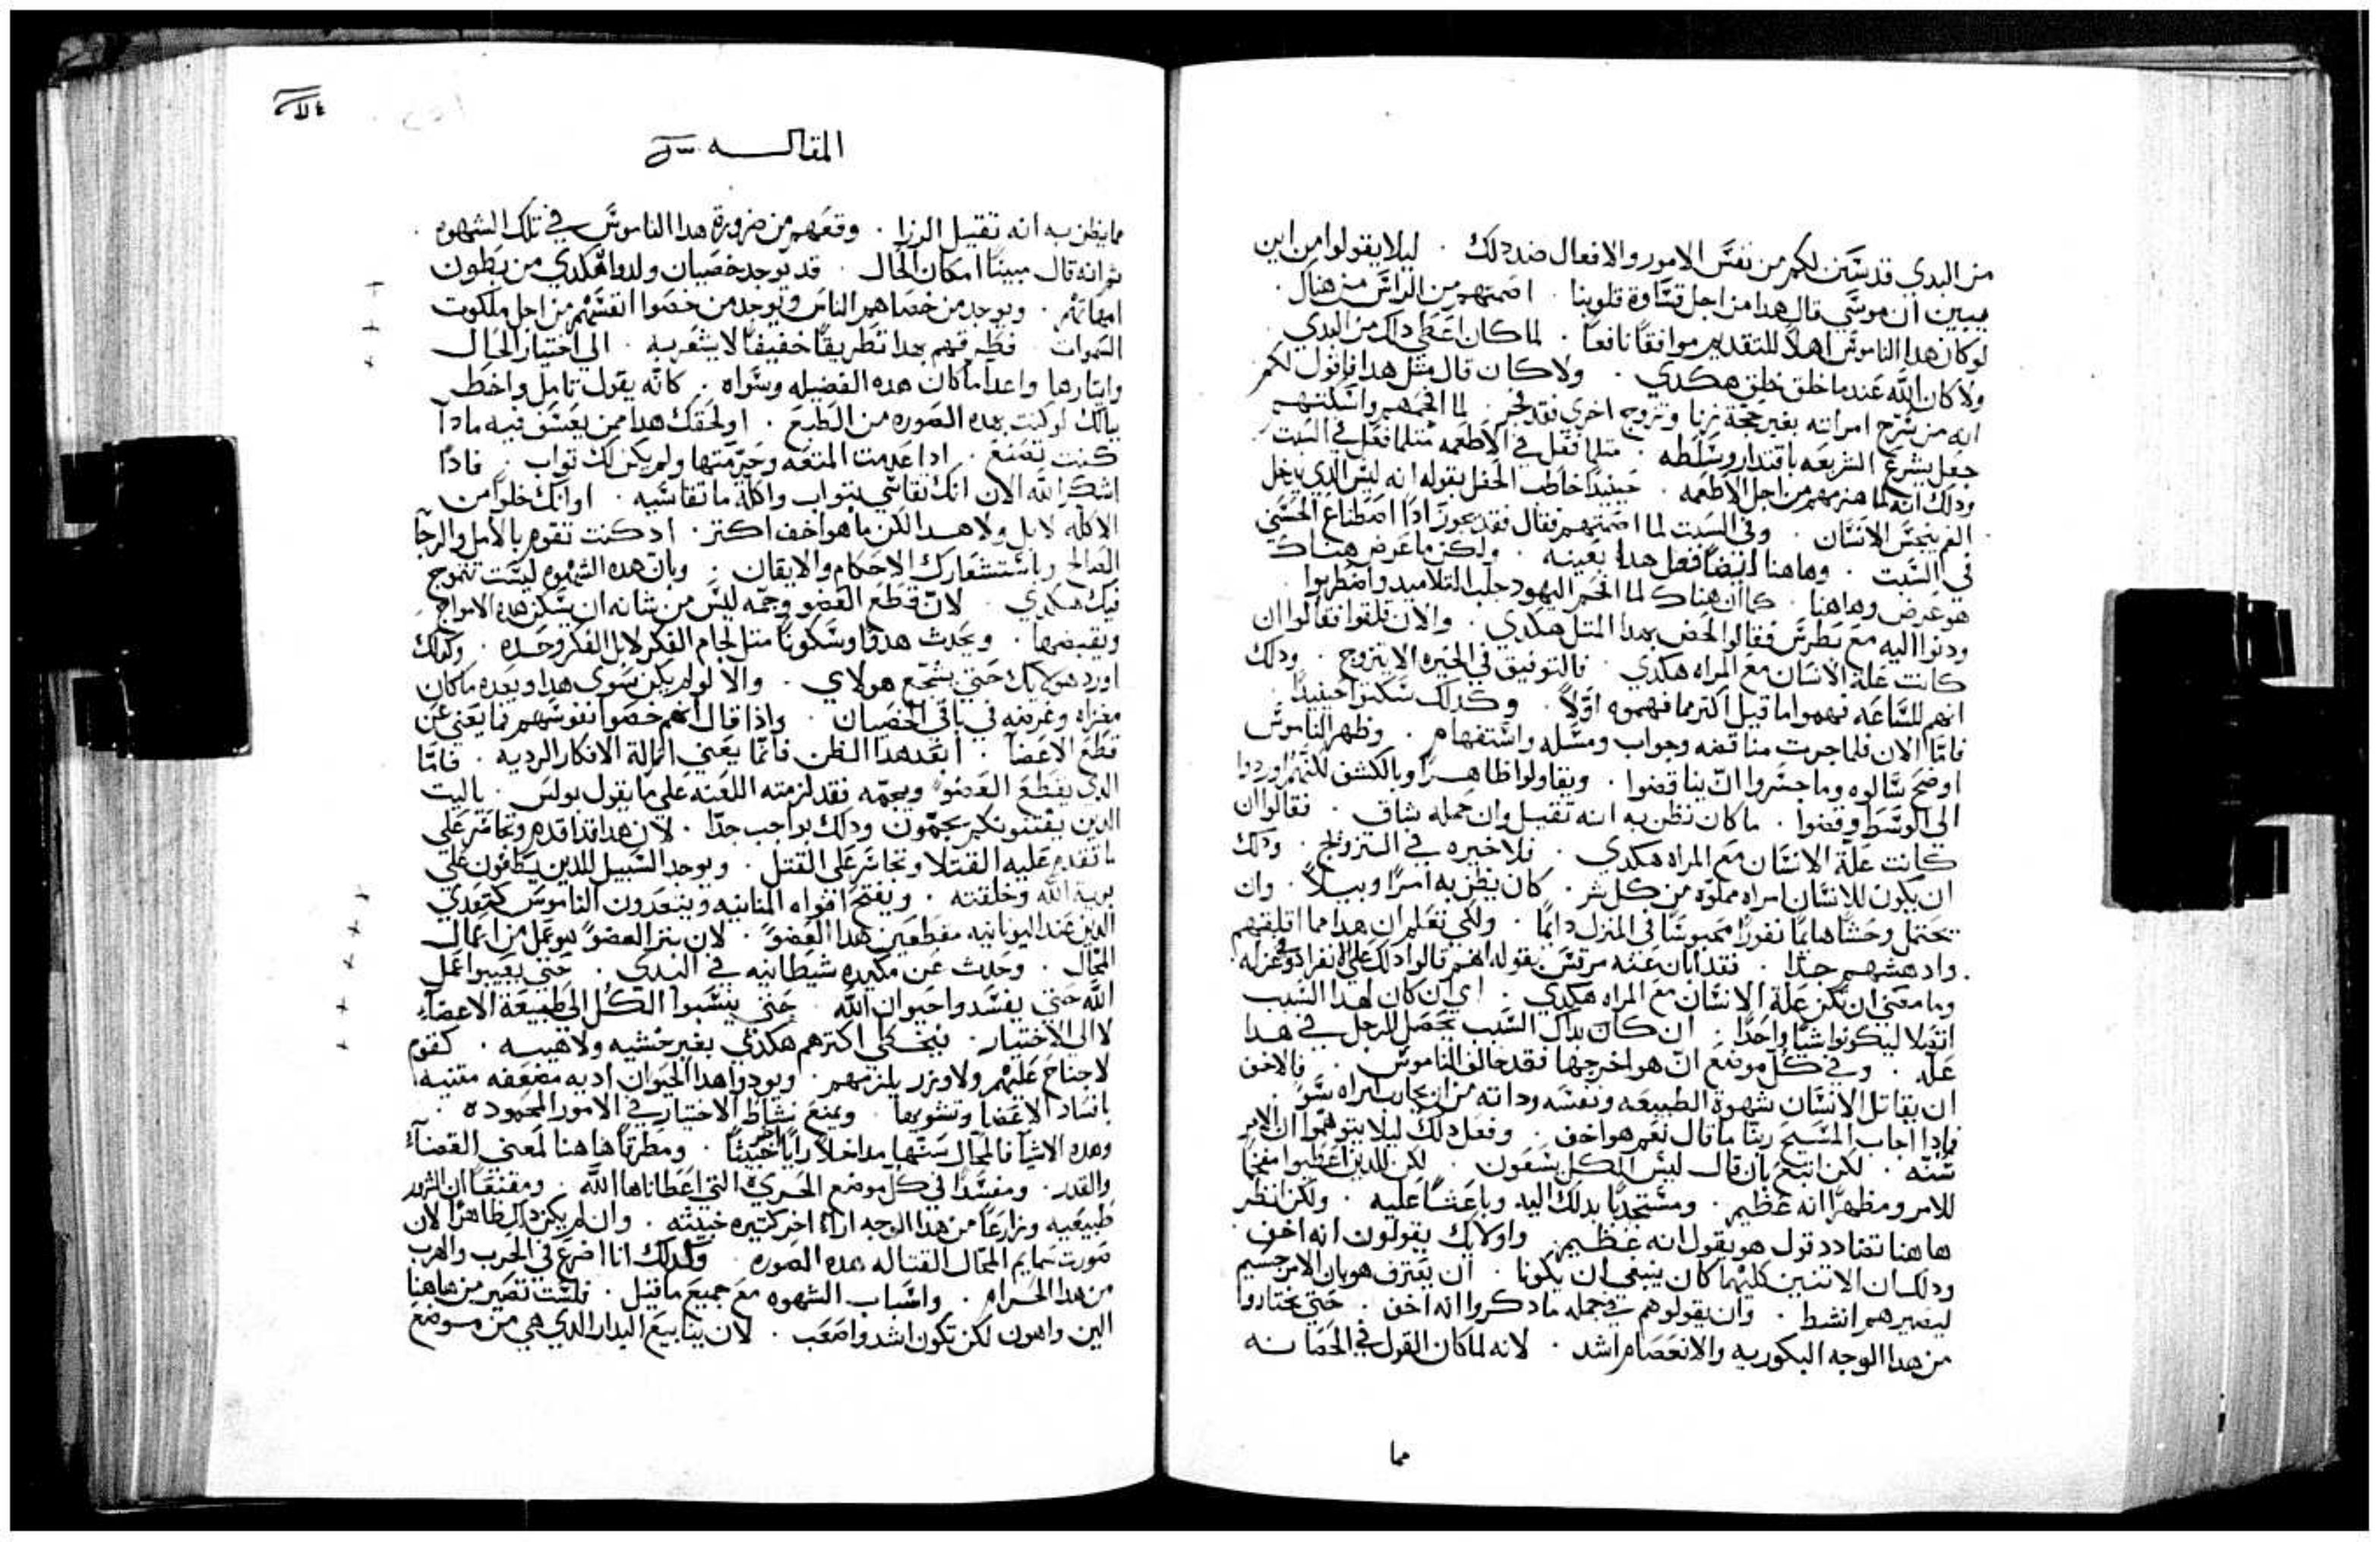 من البدي قد سَّن لكم من نفسَّ الامور والافعال ضد دلك . ليلا يقولوا من اين
يبين ان موسَّي قال هدا من اجل قسَّاوة قلوبنا . اصمتهم من الراسَّ من هناك .
لو كان هدا الناموسَّ اهلاً للتقديم موافقاً نافعاً . لما كان اعَطي داك من البدي
ولا كان الله عَندما خلق خلق هكدي . ولا كان قال متل هدا فاقول لكم
انه من سَّرح امراته بغير حجة زنا وتزوج اخري فقد فجر . لما الجمهم واسَّكتهم
جعل يشرع الشريعَه باقتدار وسَّلطه . متلما فعَل في الاطعَمه متلما فعَل في السَّبت
ودلك انه لما هزمهم من اجل الاطعمه . حينيداً خاطب الحَفل بقوله انه ليسَّ الدي يدخل
الفم ينجسَّ الانسَّان . وفي السَّبت لما اصمتهم فقال فقد يجوز اداً اصطناع الحسَّني
في السَّبت . وهاهنا ايضاً فعَل هدا بعينه . ولكن ما عَرض هناك
هو عَرض وهاهنا . كما ان هناك لما الجم اليهود جلب التلاميد واضطربوا .
ودنوا اليه مع بَطرسَّ فقالوا لخص بهدا المتل هكدي . والان قلقوا فقالوا ان
كانت عَلة الانسَّان معَ المراه هكدي . فالتوفيق في الخيره الا يتزوج . ودلك
انهم للسَّاعَه فهموا ما قيل اكتر مما فهموه اوَّلاً . وكدلك سَّكتوا حينيداً .
فامَّا الان فلما جرت مناقضه وجواب ومسَّله واسَّتفهام . وظهر الناموسَّ
اوضح سَّالوه وما جسَّروا انَّ يناقضوا . ويقاولوا ظاهراً وبالكشف لكنهم اوردوا
الي الوسَّط وقضوا . ما كان نظن به انه تقيل وان حَمله شاق . فقالوا ان
كانت عَلَّة الانسَّان معَ المراه هكدي . فلا خيره في التزويج . ودلك
ان يكون للانسَّان امراه مملوَّه من كل شر . كان يظن به امراً وبيلاً . وان
تحتمل وحَشاً هايماً نفوراً محبوسَّاً في المنزل دايماً . ولكي تعَلم ان هدا مما اقلقهم
وادهشهم جداً . فقد ابان عَنه مرقسَّ بقوله انهم قالوا دلك علي الانفراد وفي عزله
وما معَني ان تكن عَلة الانسَّان معَ المراه هكدي . اي ان كان لهدا السَّبب
اتصلا ليكونوا شياً واحَداً . ان كان بداك السَّبب يحَصل للرجل في هدا
عَله . وفي كل موضعَ انَّ هو اخرجها فقد خالف الناموسَّ . فالاخف
ان يقاتل الانسَّان شهوة الطبيعَه ونفسَّه وداته من ان يحارب امراه سَّوً
فادا اجاب المسَّيح ربنا ما قال نعم هو اخف . وفعَل دلك ليلا يتوهَّموا ان الامر
سَّنَّه . لكن اتبعَ بان قال ليسَّ الكل يسَّعَون . لكن للدين اعَطيوا مفخماً
للامر ومظهراً انه عَظيم . ومسَّتجدباً بدلك اليه وباعَتاً عَليه . ولكن انظر
هاهنا تضادد قول هو يقول انه عَظيم . واولايك يقولون انه اخف .
ودلك ان الاتنين كليهما كان ينبغي ان يكونا . ان يعَترف هو بان الامر جسَّيم
ليصيرهم انشط . وان يقولوهم في جمله ما دكروا انه اخف . حَتي يختاروا
من هدا الوجه البكوريه والانعَصام اشد . لانه لما كان القول في الحَصانه
مما
المقالـــــه
مما يظن به انه تقيل الرزا . وقعَهم من ضرورة هدا الناموسَّ في تلك الشهوه .
تم انه قال مبيناً امكان الحَال . قد توجد خصيان ولدوا هكدي من بَطون
امهاتهم . ويوجد من خصاهم الناسَّ ويوجد من خصوا انفسَّهم من اجل ملكوت
السَّموات . فطرقهم بهدا تطريقاً خفيفاً لا يشعَر به . الي اختيار الحَال
وايتارها واعداً ما كان هده الفضيله وسَّواه . كانَّه يقول تامل واخطر
ببالك لو كنت بهده الصوره من الطبعَ . او لحَقك هدا ممن يعَسَّف فيه مادا
كنت تصنعَ . ادا عَدمت المتعَه وحَرمتها ولم يكن لك تواب . فاداً
اشكر الله الان انك تقاسَّي بتواب واكلة ما تقاسَّيه . او انك خلواً من
الاكله لا بل ولا هدا لكن ما هو اخف اكتر . اد كنت تقوم بالامل والرجا
الصالح وباسَّتشعَارك الاحَكام والايقان . وبان هده الشهوه ليسَّت تتموج
فيك هكدي . لانَّ قطعَ العَضو وجمَّه ليسَّ من شانه ان يسَّكن هده الامواج
ويقبضها . ويحَدث هدوَّاً وسَّكوناً متل لجام الفكر لا بل الفكر وحَده . وكدلك
اورد هولايك حَتي يشجَّع هولاي . والا لو لم يكن سَّوي هدا وبعَده ما كان
مغزاه وغرضه في باقي الخصيان . وادا قال انهم خصوا نفوسَّهم فما يعَني عَن
قطعَ الاعَضا . ابعَد هدا الظن فانَّما يعَني ازالة الافكار الرديه . فامَّا
الدي يقطع العَضو ويجمَّه فقد لزمته اللعَنه علي ما يقول بولسَّ . يا ليت
الدين يقتفونكم يجمَّون ودلك بواجب جدًّا . لان هدا قد اقدم وتجاسَّر علي
ما تقدم عَليه القتلا وتجاسَّر علي القتل . ويوجد السَّبيل للدين يطافون علي
برية الله وخلقته . ويفتح افواه المنانيه ويتعَدون الناموسَّ كتعَدي
الدين عَند اليونانيه مقطعَين هدا العَضوً . لان بتر العضوً هو عَمل من اعَمال
المحَال . وحَدث عَن مكيده شيطانيه في البدي . حَتي يعَيبوا عَمل
الله حَتي يفسَّدوا حَيوان الله . حتي ينسَّبوا الكل الي طبيعَة الاعضاء
لا الي الاختيار . فيخطي اكترهم هكدي بغير خشيه ولا هيبه . كقوم
لا جناح عَليهم ولا وزر يلزمهم . ويودوا هدا الحيوان اديه مضعَفه متنيه
بافسَّاد الاعَضا وتشويهها . ويمنعَ نشاط الاختيار في الامور المحَموده .
وهده الاشيا فالمحَال سَنَّها مداخلاً راياً اخر خبيتاً . ومطرقاً هاهنا لمعَني القضاء
والقدر . ومفسَّداً في كل موضع الحَريَّه التي اعَطاناها الله . ومقنعَاً ان الشرور
طبيعَيه وزارعَاً من هدا الوجه اراء اخر كتيره خبيته . وان لم يكن داك ظاهراً لان
صورت سمايم المحَال القتاله هده الصوره . ولدلك انا اضرع في الحَرب والهرب
من هدا الحَرام . واسَّباب الشهوه معَ جميعَ ما قيل . فليسَّت تصير من هاهنا
الين واهون لكن تكون اشد واصعَب . لان ينابيعَ البدار الدي هي من موضعَ